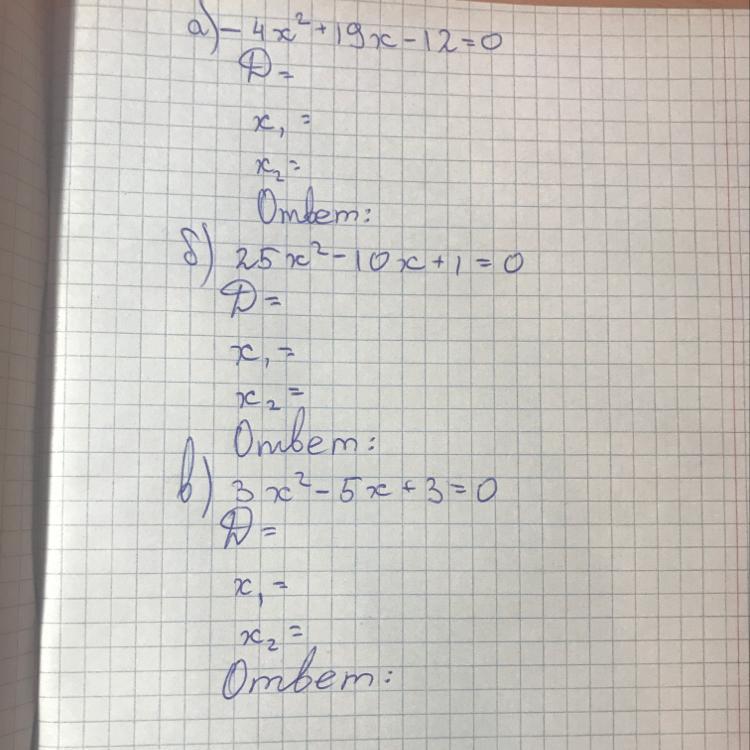 а) -4x²+19x-12=0
D=
x₁=
x₂=
Ответ:
б) 25x²-10x+1=0
D=
x₁=
x₂=
Ответ:
в) 3x²-5x+3=0
D=
x₁=
x₂=
Ответ: